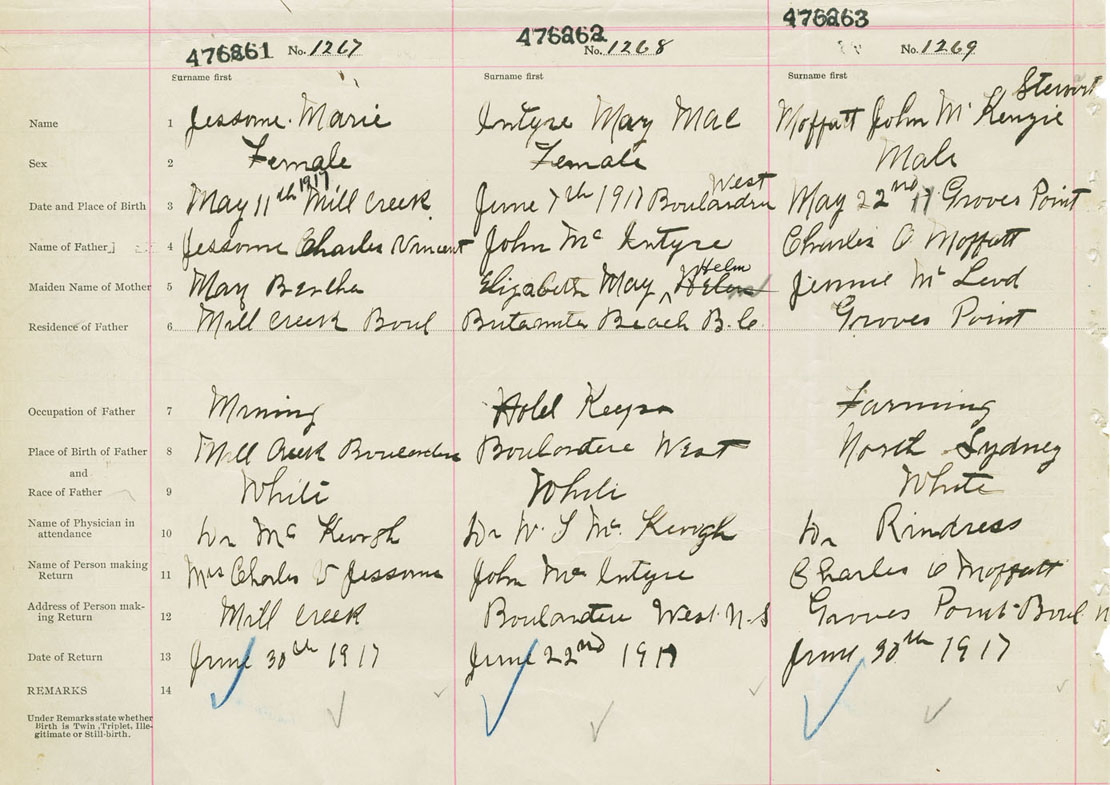 476261 No. 1267 476262 No. 1268 476263 No. 1269
Surname first Surname first Surname first
Stewart
Name 1 Jessome Marie Intyre May Mac Moffatt John McKenzie
Sex 2 Female Female Male
1917 West
Date and Place of Birth 3 May 11th Mill Creek June 7th 1917 Boulardrie May 22nd 17 Groves Point
Name of Father 4 Jessome Charles Vincent John Mc Intyre Charles O Moffatt
Helm
Maiden Name of Mother 5 May Bertha Elizabeth May Jennie Mc Leod
Residence of Father 6 Mill Creek Boul Beach B.C. Groves Point
Occupation of Father 7 Mining Keeper Farming
Place of Birth of Father 8 Mill Creek Boularderie Boularderie West North Sydney
and
Race of Father 9 White White White
Name of Physician in attendance 10 Dr McKeogh Dr W. S McKeogh Dr Rindress
Name of Person making Return 11 Mrs Charles V Jessome John McIntyre Charles O Moffatt
Address of Person making Return 12 Mill Creek Boularderie West N.S Groves Point Boul
Date of Return 13 June 30th 1917 June 22nd 1917 June 30th 1917
REMARKS 14
Under Remarks state whether
Birth is Twin, Triplet, Ille-
gitimate or Still-birth.